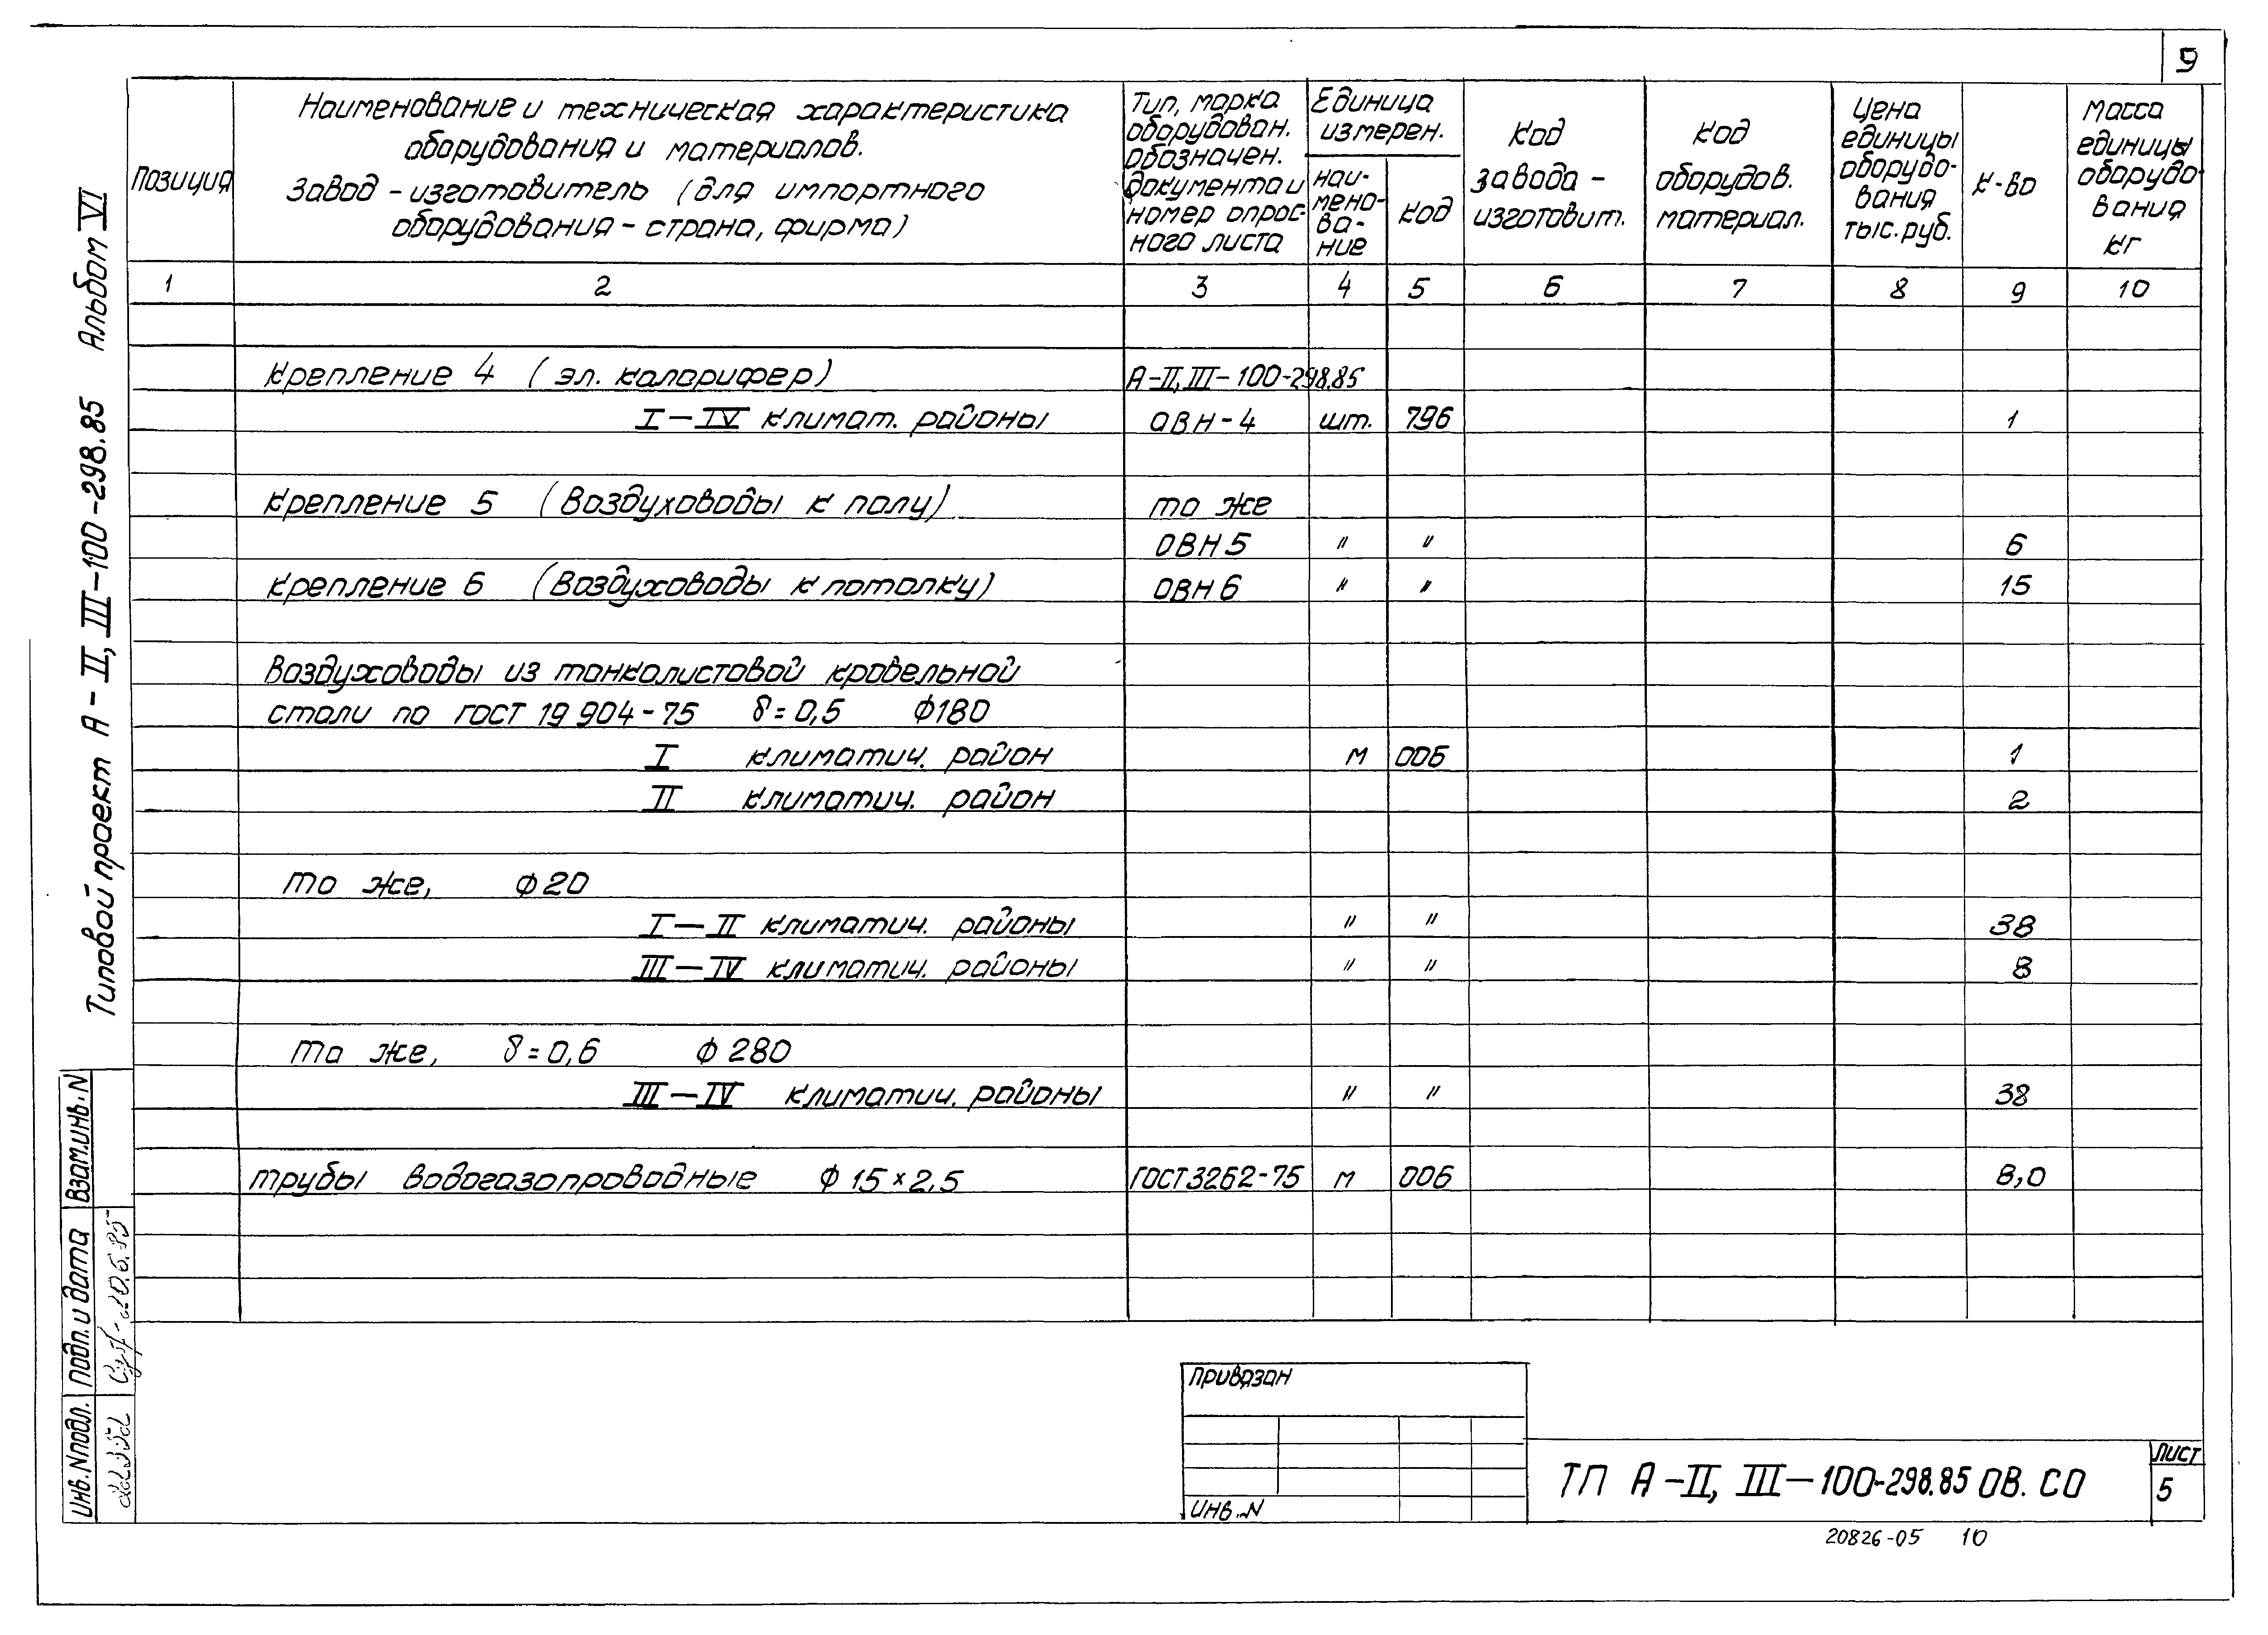 9
Позиция
Наименование и техническая характеристика
оборудования и материалов.
Завод-изготовитель (для импортного
оборудования - страна, фирма)
Тип, марка
оборудован.
обозначен.
документа и
номер опрос-
ного листа
Единица
измерен.
наи-
мено-
ва-
ние
код
Код
завода -
изготовит.
Код
оборудов.
материал.
Цена
единицы
оборудо-
вания
тыс. руб.
К-во
Масса
единицы
оборудо
вания
кг
1 2 3 4 5 6 7 8 9 10
Крепление 4 (эл. калорифер) А-II, III-100-298.85
I-IV климат. районы ОВН-4 шт. 796 1
Крепление 5 (Воздуховоды к полу) то же
ОВН 5 " " 6
Крепление 6 (Воздуховоды к потолку) ОВН 6 " " 15
Воздуховоды из тонколистовой кровельной
стали по ГОСТ 19904-75 δ=0,5 Ф180
I климатич. район м 006 1
II климатич. район 2
то же, Ф20
I-II климатич. районы " " 38
III-IV климатич. районы " " 8
то же, δ=0,6 Ф280
III-IV климатич. районы " " 38
трубы водогазопроводные Ф15×2,5 ГОСТ 3262-75 м 006 8,0
Типовой проект А-II, III-100-298.85 Альбом VI
Взам.инв.N
Подп. и дата
Инв.Nподл.
Привязан
Инв.N
ТП А-II, III-100-298.85 ОВ. СО
Лист
5
20826-05 10